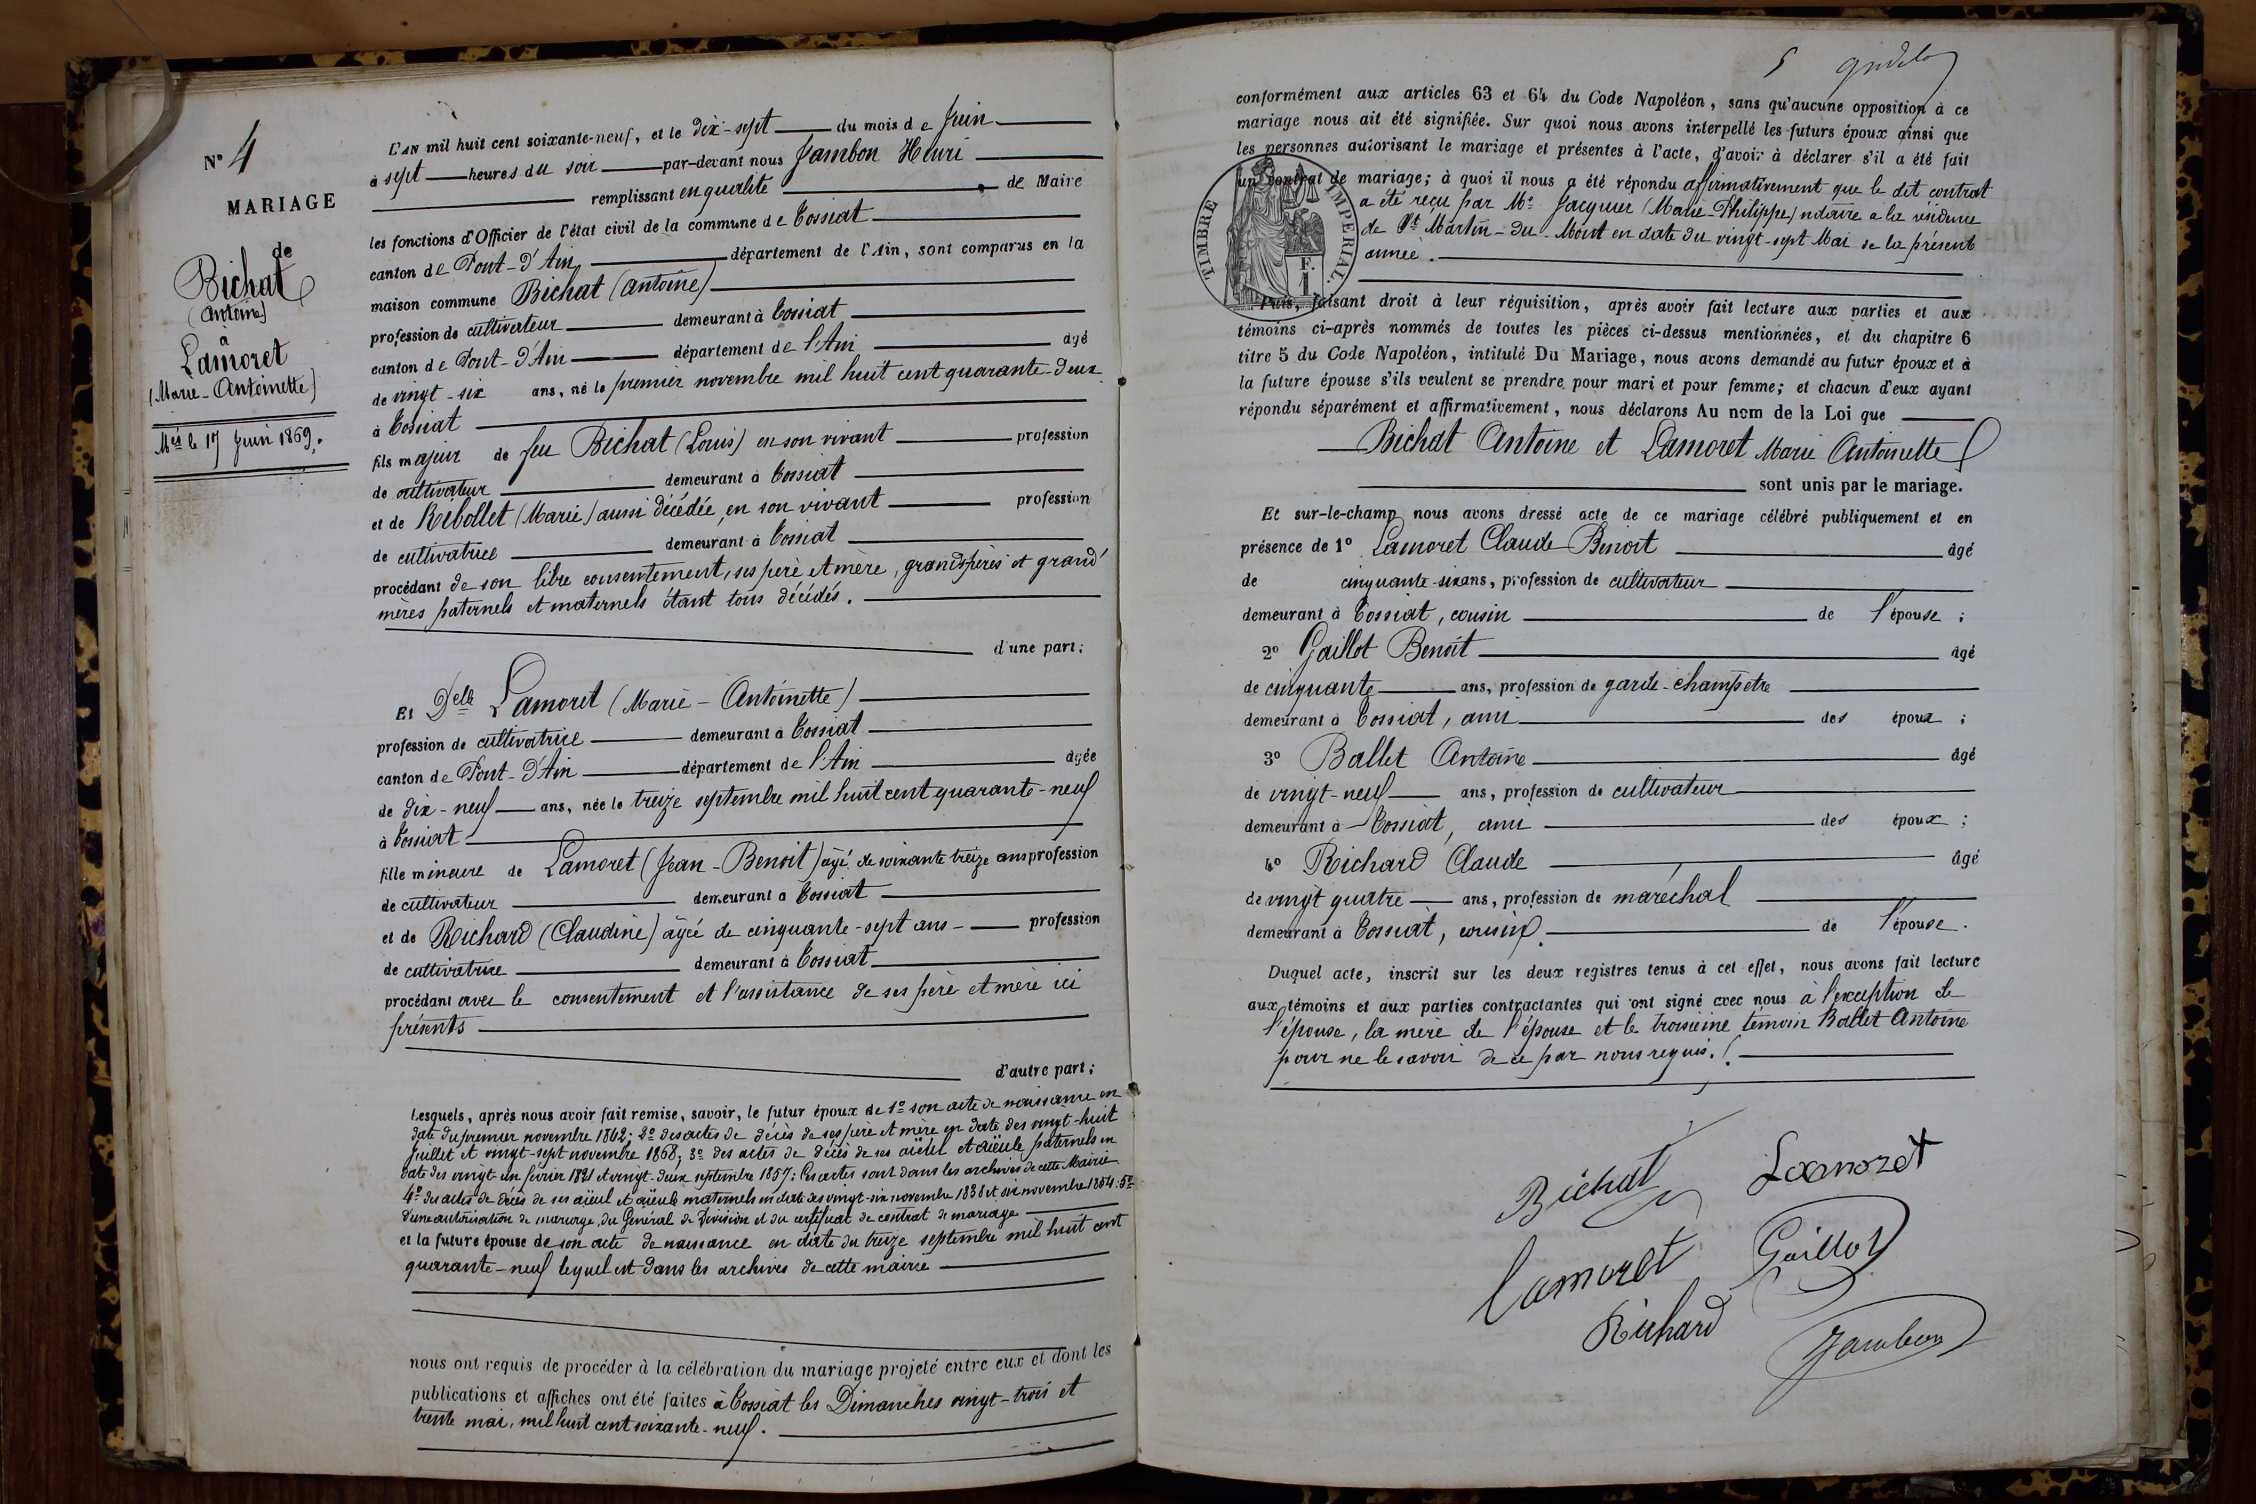 N° 4
MARIAGE
de
Bichat
(Antoine)
à
Lamoret
(Marie-Antoinette)
Més le 17 Juin 1869.
L'AN mil huit cent soixante-neuf, et le dix-sept du mois de Juin
à sept heures du soir par-devant nous Jambon Henri
remplissant en qualité de Maire
les fonctions d'Officier de l'état civil de la commune de Tossiat
canton de Pont-d'Ain département de l'Ain, sont comparus en la
maison commune Bichat (Antoine)
profession de cultivateur demeurant à Tossiat
canton de Pont-d'Ain département de l'Ain agé
de vingt-six ans, né le premier novembre mil huit cent quarante-deux
à Tossiat
fils majeur de feu Bichat (Louis) en son vivant profession
de cultivateur demeurant à Tossiat
et de Rebollet (Marie) aussi décédée, en son vivant profession
de cultivatrice demeurant à Tossiat
procédant de son libre consentement, ses père et mère, grands-pères et grand'
mères paternels et maternels étant tous décédés.
d'une part;
Et Delle Lamoret (Marie-Antoinette)
profession de cultivatrice demeurant à Tossiat
canton de Pont-d'Ain département de l'Ain agée
de dix-neuf ans, née le treize septembre mil huit cent quarante-neuf
à Tossiat
fille mineure de Lamoret (Jean-Benoit) âgé de soixante treize ans profession
de cultivateur demeurant à Tossiat
et de Richard (Claudine) âgée de cinquante-sept ans profession
de cultivatrice demeurant à Tossiat
procédant avec le consentement et l'assistance de ses père et mère ici
présents
d'autre part;
Lesquels, après nous avoir fait remise, savoir, le futur époux de 1° son acte de naissance en
date du premier novembre 1842; 2° des actes de décès de ses père et mère en date des vingt-huit
Juillet et vingt-sept novembre 1868; 3° des actes de décès de ses aïeul et aïeule paternels en
date des vingt-un février 1821 et vingt-deux septembre 1857: Ces actes sont dans les archives de cette Mairie
4° des actes de décès de ses aïeul et aïeule maternels en date des vingt-six novembre 1838 et six novembre 1854: 5°
d'une autorisation de mariage, du Général de Division et du certificat de contrat de mariage
et la future épouse de son acte de naissance en date du treize septembre mil huit cent
quarante-neuf lequel est dans les archives de cette mairie
nous ont requis de procéder à la célébration du mariage projeté entre eux et dont les
publications et affiches ont été faites à Tossiat les Dimanches vingt-trois et
trente mai, mil huit cent soixante-neuf.
5
conformément aux articles 63 et 64 du Code Napoléon, sans qu'aucune opposition à ce
mariage nous ait été signifiée. Sur quoi nous avons interpellé les futurs époux ainsi que
les personnes autorisant le mariage et présentes à l'acte, d'avoir à déclarer s'il a été fait
un contrat de mariage; à quoi il nous a été répondu affirmativement que le dit contrat
a été reçu par Me Jacquier (Marie-Philippe) notaire à la résidence
de St Martin-du-Mont en date du vingt-sept Mai de la présent
année.
TIMBRE IMPERIAL
F. 1
Puis, faisant droit à leur réquisition, après avoir fait lecture aux parties et aux
témoins ci-après nommés de toutes les pièces ci-dessus mentionnées, et du chapitre 6
titre 5 du Code Napoléon, intitulé Du Mariage, nous avons demandé au futur époux et à
la future épouse s'ils veulent se prendre pour mari et pour femme; et chacun d'eux ayant
répondu séparément et affirmativement, nous déclarons Au nom de la Loi que
Bichat Antoine et Lamoret Marie Antoinette
sont unis par le mariage.
Et sur-le-champ nous avons dressé acte de ce mariage célébré publiquement et en
présence de 1° Lamoret Claude Benoit âgé
de cinquante-six ans, profession de cultivateur
demeurant à Tossiat, cousin de l'épouse;
2° Gaillot Benoit âgé
de cinquante ans, profession de garde-champêtre
demeurant à Tossiat, ami des époux;
3° Ballet Antoine âgé
de vingt-neuf ans, profession de cultivateur
demeurant à Tossiat, ami des époux;
4° Richard Claude âgé
de vingt quatre ans, profession de maréchal
demeurant à Tossiat, cousin de l'épouse.
Duquel acte, inscrit sur les deux registres tenus à cet effet, nous avons fait lecture
aux témoins et aux parties contractantes qui ont signé avec nous à l'exception de
l'épouse, la mère de l'épouse et le troisième témoin Ballet Antoine
pour ne le savoir de ce par nous requis.
Bichat Lamoret
Lamoret Gaillot
Richard Jambon